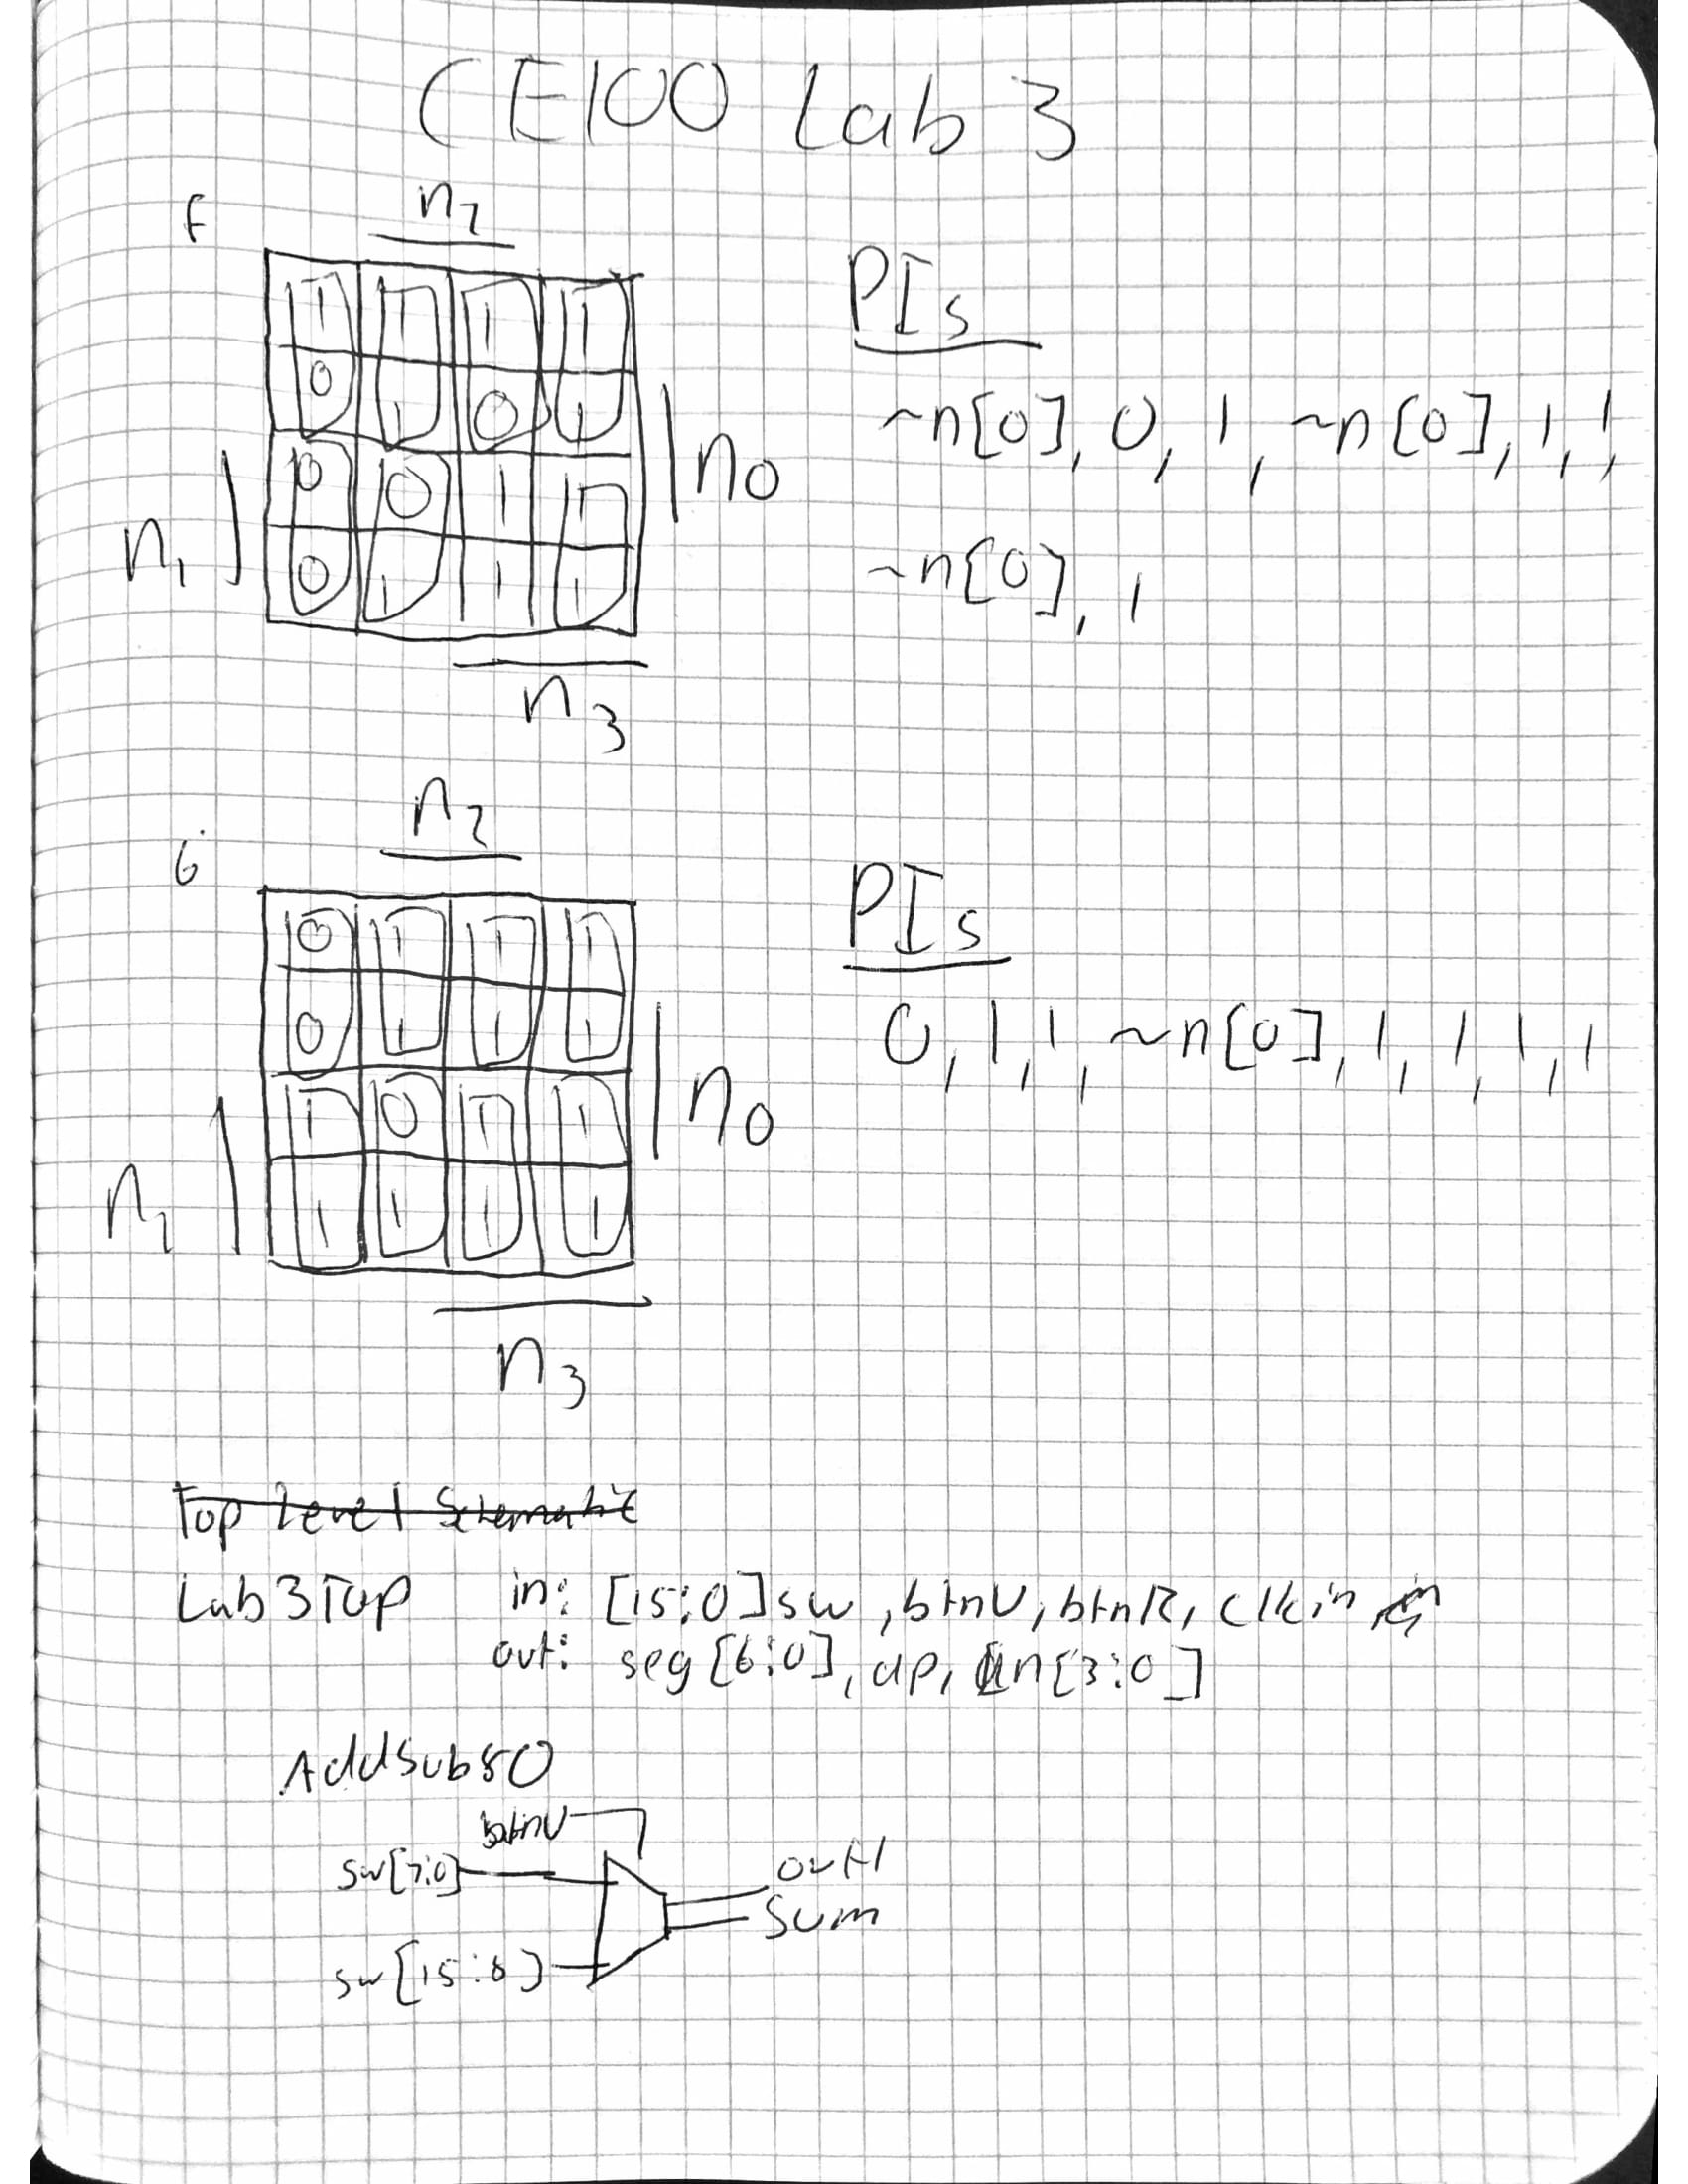 CE100 Lab 3
F
n2
1 1 1 1
0 1 0 1
n0
0 0 1 1
n1
0 1 1 1
n3
PIs
~n[0], 0, 1, ~n[0], 1, 1,
~n[0], 1
G
n2
0 1 1 1
0 1 1 1
n0
1 0 1 1
n1
1 1 1 1
n3
PIs
0, 1, 1, ~n[0], 1, 1, 1, 1
Top Level Schematic
Lab3Top in: [15:0]sw, btnU, btnR, clkin
out: seg[6:0], dp, an[3:0]
AddSub8
btnU
sw[7:0]
out1
sum
sw[15:8]